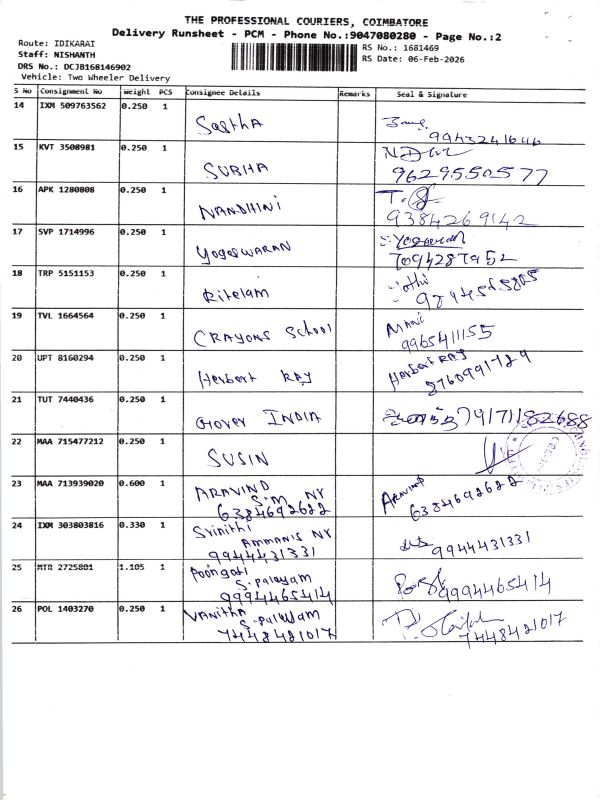 THE PROFESSIONAL COURIERS, COIMBATORE
Delivery Runsheet - PCM - Phone No.:9047080280 - Page No.:2
Route: IDIKARAI
RS No.: 1681469
Staff: NISHANTH
RS Date: 06-Feb-2026
DRS No.: DCJB168146902
Vehicle: Two Wheeler Delivery
S No Consignment No Weight PCS Consignee Details Remarks Seal & Signature
14 IXM 509763562 0.250 1
SasthA
9943241646
15 KVT 3508981 0.250 1
SUBHA
9629550577
16 APK 1280808 0.250 1
NANDHINI
9384269142
17 SVP 1714996 0.250 1
YOGESWARAN
7094287952
18 TRP 5151153 0.250 1
Ritelam
19 TVL 1664564 0.250 1
CRAYONS School
MANI
9965411155
20 UPT 8160294 0.250 1
Herbert RAY
Herbert RAJ
8760991729
21 TUT 7440436 0.250 1
Gover INDIA
22 MAA 715477212 0.250 1
SUSIN
23 MAA 713939020 0.600 1
ARAVIND
S.M NY
6384692622
ARAVIND
6384692622
24 IXM 303803816 0.330 1
Srinithi
AMMANIS NY
9944431331
9944431331
25 MTR 2725801 1.105 1
Poongodi
S.palayam
9994465414
9994465414
26 POL 1403270 0.250 1
VANITHA
S.palayam
7448421017
7448421017